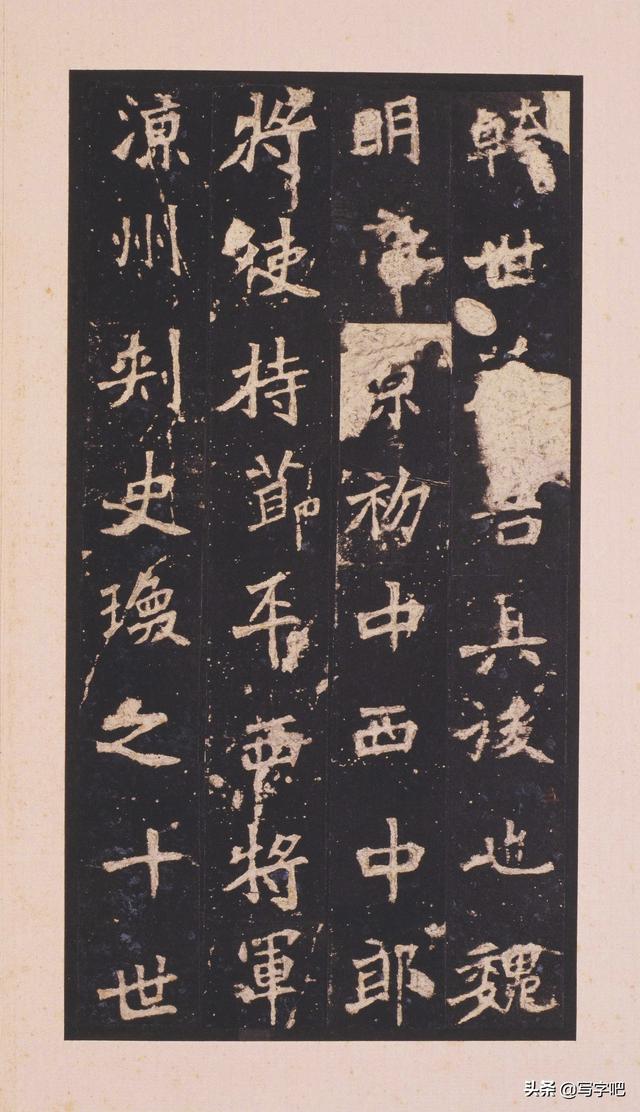 幹世其後也魏
明帝景初中西中郎
將使持節平西將軍
涼州刺史瑍之十世
頭条 @写字吧